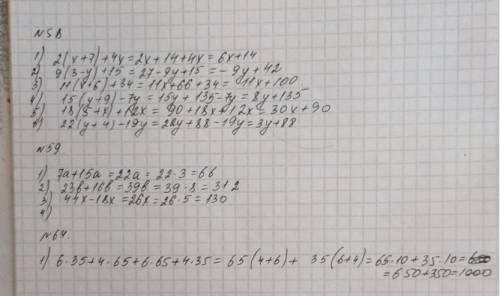 №58
1) 2(x+7)+4x=2x+14+4x=6x+14
2) 9(3-y)+15=27-9y+15=-9y+42
3) 11(x+6)+34=11x+66+34=11x+100
4) 15(y+9)-7y=15y+135-7y=8y+135
5) 18(5+x)+12x=90+18x+12x=30x+90
6) 22(y+4)-19y=22y+88-19y=3y+88
№59
1) 7a+15a=22a=22·3=66
2) 23b+16b=39b=39·8=312
3) 44x-18x=26x=26·5=130
4)
№64.
1) 6·35+4·65+6·65+4·35=65(4+6)+35(6+4)=65·10+35·10=
=650+350=1000